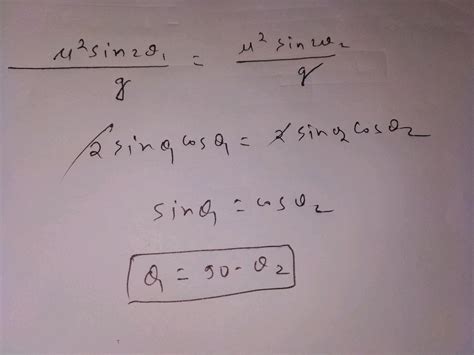 u² sin2θ₁ / g = u² sin2θ₂ / g
2 sinθ₁ cosθ₁ = 2 sinθ₂ cosθ₂
sinθ₁ = cosθ₂
θ₁ = 90 - θ₂